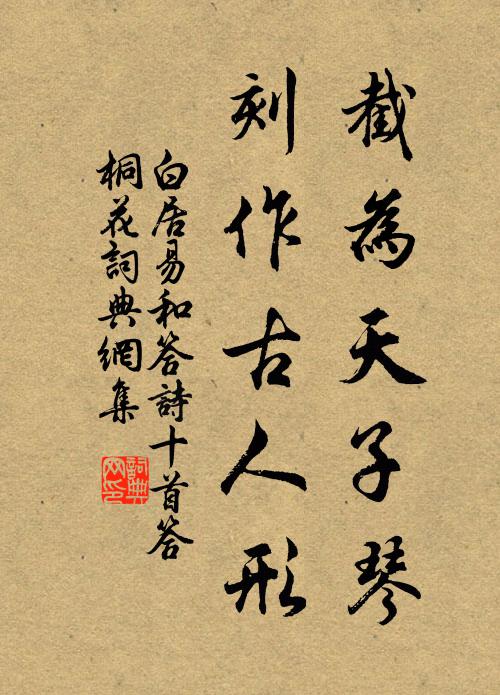 截為天子琴
刻作古人形
白居易和答詩十首答
桐花詞典網集
詞典
网印